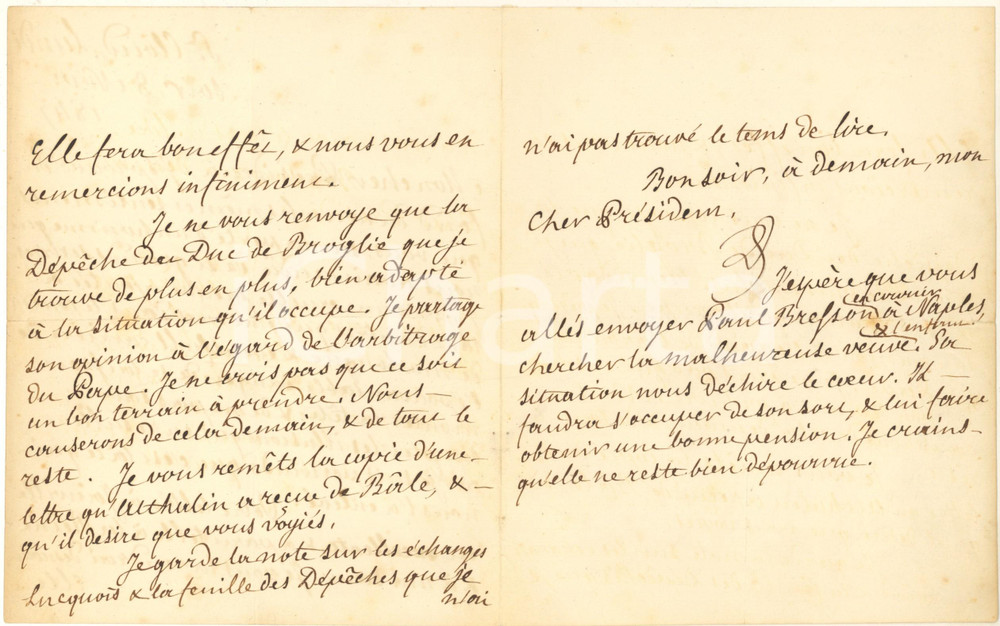 Elle fera bon effêt, & nous vous en
remercions infiniment.
Je ne vous renvoye que la
Dépêche du Duc de Broglie que je
trouve de plus en plus, bien adapté
à la situation qu'il occupe. Je partage
son opinion à l'égard de l'arbitrage
du Pape. Je ne crois pas que ce soit
un bon terrain à prendre. Nous
causerons de cela demain, & de tout le
reste. Je vous remêts la copie d'une
lettre qu'Atthalin a reçue de Bâle, &
qu'il desire que vous voÿiés.
Je garde la note sur les échanges
Lucquois & la feuille des Dépêches que je
n'ai
n'ai pas trouvé le tems de lire.
Bon soir, à demain, mon
Cher Président.
J'espère que vous
allés envoyer Paul Bresson en courier à Naples,
chercher la malheureuse veuve & l'enfant. Sa
situation nous déchire le cœur. Il
faudra s'occuper de son sort, & lui faire
obtenir une bonne pension. Je crains
qu'elle ne reste bien dépourvue.